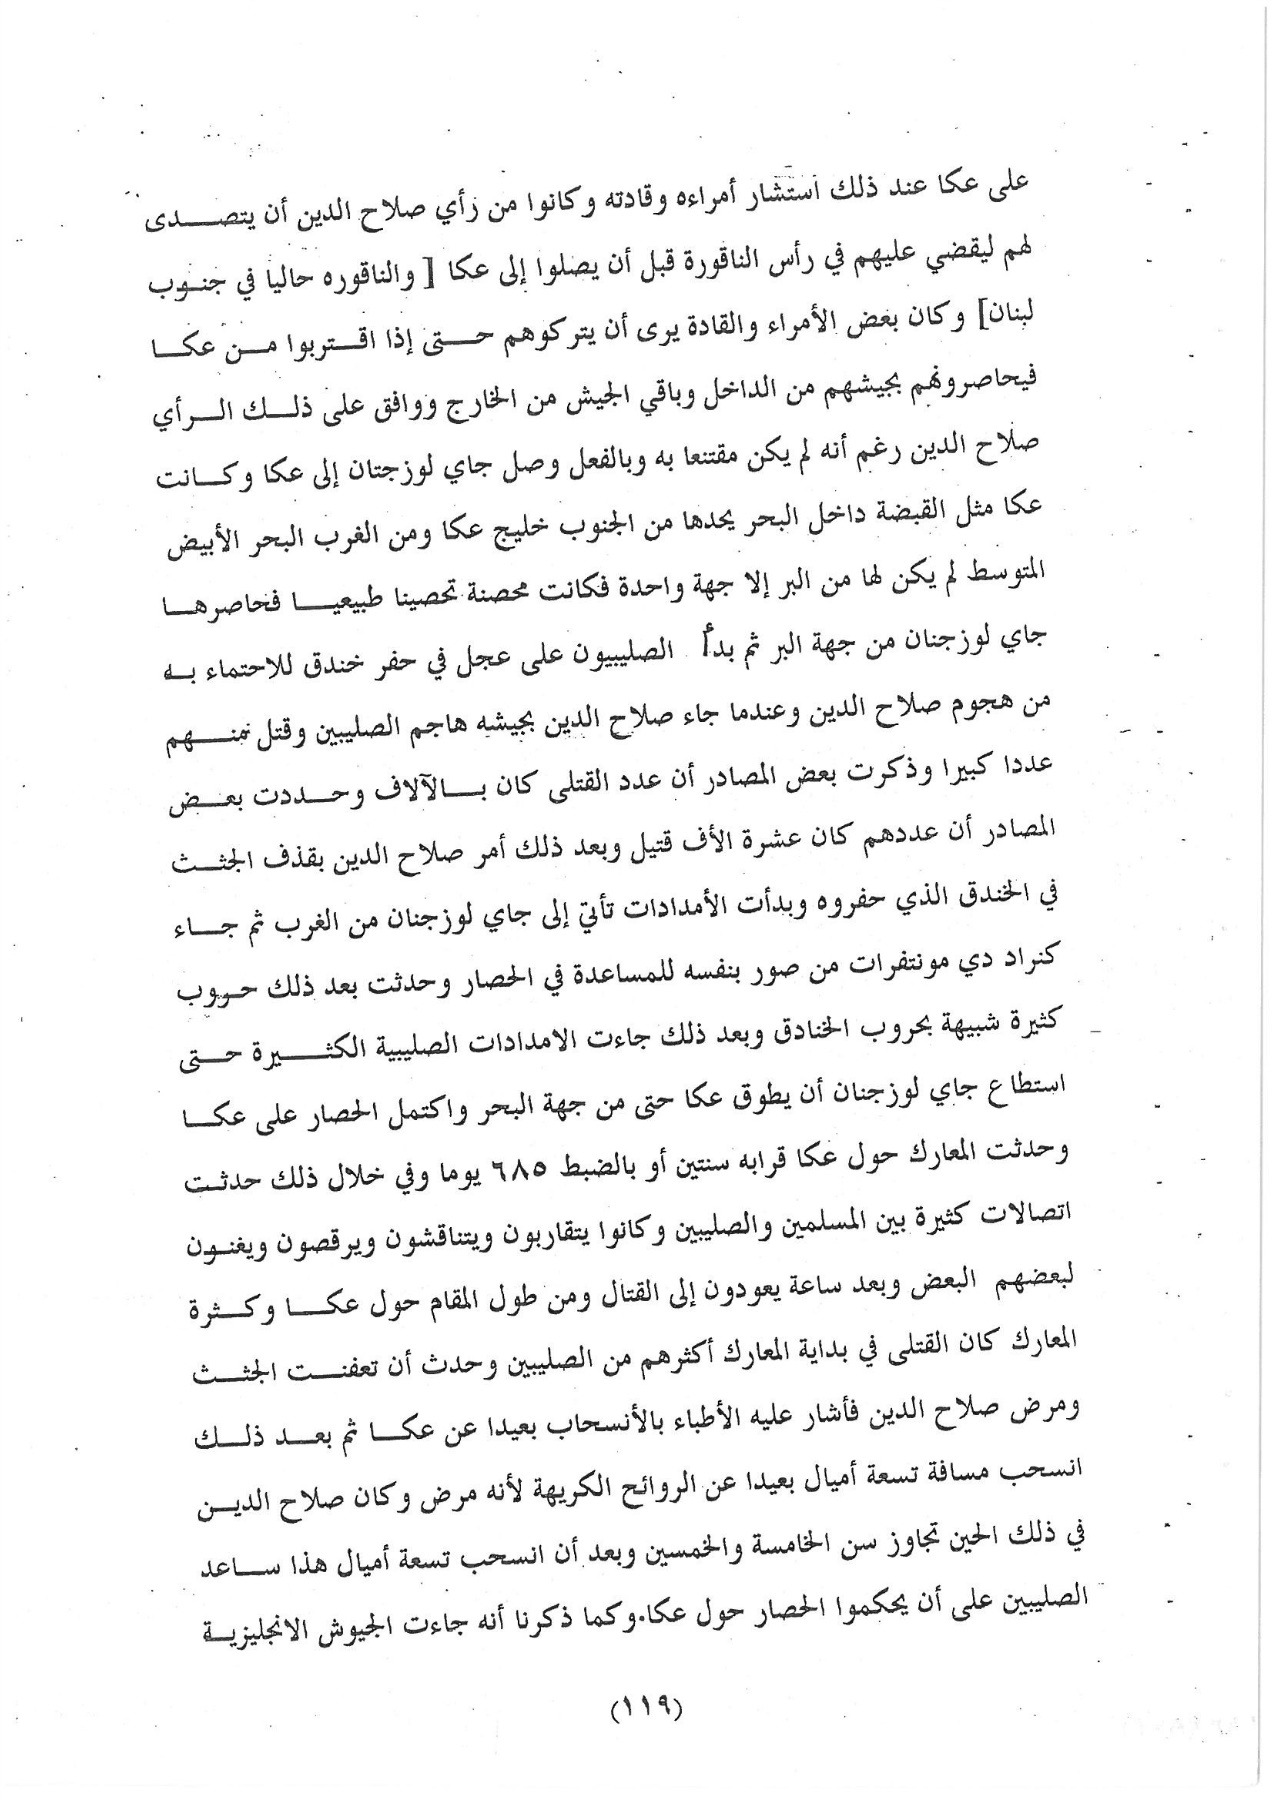 على عكا عند ذلك استشار أمراءه وقادته وكانوا من رأي صلاح الدين أن يتصدى
لهم ليقضي عليهم في رأس الناقورة قبل أن يصلوا إلى عكا [ والناقوره حاليا في جنوب
لبنان] وكان بعض الأمراء والقادة يرى أن يتركوهم حتى إذا اقتربوا من عكا
فيحاصرونهم بجيشهم من الداخل وباقي الجيش من الخارج ووافق على ذلك الرأي
صلاح الدين رغم أنه لم يكن مقتنعا به وبالفعل وصل جاي لوزجتان إلى عكا وكانت
عكا مثل القبضة داخل البحر يحدها من الجنوب خليج عكا ومن الغرب البحر الأبيض
المتوسط لم يكن لها من البر إلا جهة واحدة فكانت محصنة تحصينا طبيعيا فحاصرها
جاي لوزجنان من جهة البر ثم بدأ الصليبيون على عجل في حفر خندق للاحتماء به
من هجوم صلاح الدين وعندما جاء صلاح الدين بجيشه هاجم الصليبين وقتل منهم
عددا كبيرا وذكرت بعض المصادر أن عدد القتلى كان بالآلاف وحددت بعض
المصادر أن عددهم كان عشرة الأف قتيل وبعد ذلك أمر صلاح الدين بقذف الجثث
في الخندق الذي حفروه وبدأت الأمدادات تأتي إلى جاي لوزجنان من الغرب ثم جاء
كنراد دي مونتفرات من صور بنفسه للمساعدة في الحصار وحدثت بعد ذلك حروب
كثيرة شبيهة بحروب الخنادق وبعد ذلك جاءت الامدادات الصليبية الكثيرة حتى
استطاع جاي لوزجنان أن يطوق عكا حتى من جهة البحر واكتمل الحصار على عكا
وحدثت المعارك حول عكا قرابه سنتين أو بالضبط ٦٨٥ يوما وفي خلال ذلك حدثت
اتصالات كثيرة بين المسلمين والصليبين وكانوا يتقاربون ويتناقشون ويرقصون ويغنون
لبعضهم البعض وبعد ساعة يعودون إلى القتال ومن طول المقام حول عكا وكثرة
المعارك كان القتلى في بداية المعارك أكثرهم من الصليبين وحدث أن تعفنت الجثث
ومرض صلاح الدين فأشار عليه الأطباء بالأنسحاب بعيدا عن عكا ثم بعد ذلك
انسحب مسافة تسعة أميال بعيدا عن الروائح الكريهة لأنه مرض وكان صلاح الدين
في ذلك الحين تجاوز سن الخامسة والخمسين وبعد أن انسحب تسعة أميال هذا ساعد
الصليبين على أن يحكموا الحصار حول عكا.وكما ذكرنا أنه جاءت الجيوش الانجليزية
(١١٩)